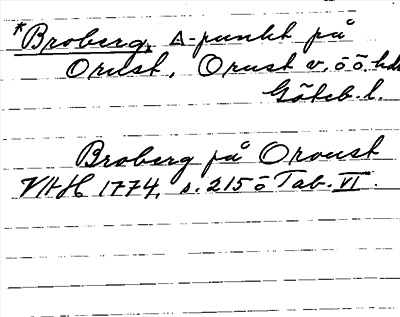 *Broberg, Δ-punkt på
Orust, Orust v. o ö. hd
Göteb. l.
Broberg på Oroust
VAH 1774, s. 215 o Tab. VI.